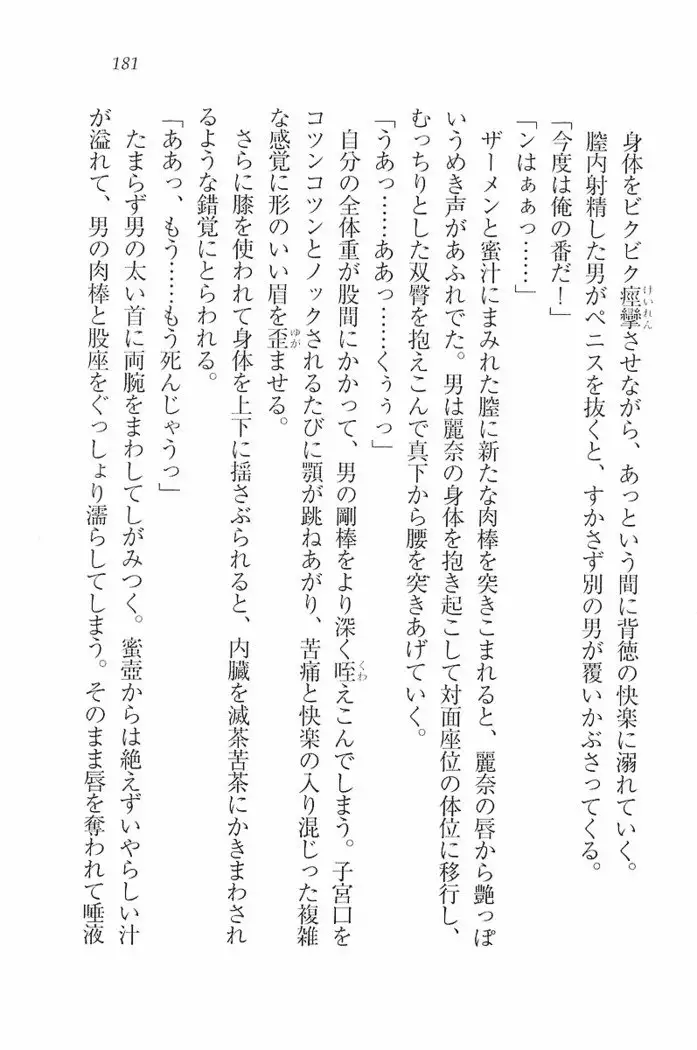 181
身体をビクビク痙攣させながら、あっという間に背徳の快楽に溺れていく。
けいれん
膣内射精した男がペニスを抜くと、すかさず別の男が覆いかぶさってくる。
「今度は俺の番だ！」
「ンはぁぁっ……」
ザーメンと蜜汁にまみれた膣に新たな肉棒を突きこまれると、麗奈の唇から艶っぽ
いうめき声があふれでた。男は麗奈の身体を抱き起こして対面座位の体位に移行し、
むっちりとした双臀を抱えこんで真下から腰を突きあげていく。
「うあっ……ああっ……くぅぅっ」
自分の全体重が股間にかかって、男の剛棒をより深く咥えこんでしまう。子宮口を
くわ
コツンコツンとノックされるたびに顎が跳ねあがり、苦痛と快楽の入り混じった複雑
な感覚に形のいい眉を歪ませる。
ゆが
さらに膝を使われて身体を上下に揺さぶられると、内臓を滅茶苦茶にかきまわされ
るような錯覚にとらわれる。
「ああっ、もう……もう死んじゃうっ」
たまらず男の太い首に両腕をまわしてしがみつく。蜜壺からは絶えずいやらしい汁
が溢れて、男の肉棒と股座をぐっしょり濡らしてしまう。そのまま唇を奪われて唾液